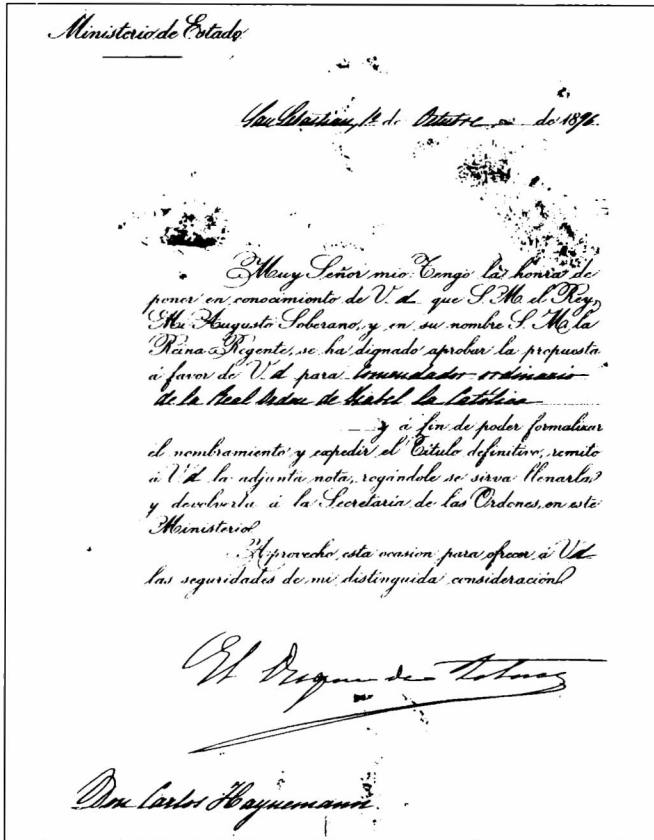 Ministerio de Estado
San Sebastian, 1º de Octubre de 1896.
Muy Señor mio: Tengo la honra de
poner en conocimiento de V.d que S. M. el Rey,
Mi Augusto Soberano, y en su nombre S. M. la
Reina Regente, se ha dignado aprobar la propuesta
á favor de V.d para Comendador ordinario
de la Real Orden de Isabel la Católica
y á fin de poder formalizar
el nombramiento y expedir el Título definitivo, remito
á V.d la adjunta nota, rogándole se sirva llenarla
y devolverla á la Secretaría de las Ordenes, en este
Ministerio
Aprovecho esta ocasion para ofrecer á V.d
las seguridades de mi distinguida consideración
El Duque de Tetuan
Don Carlos Haynemann.